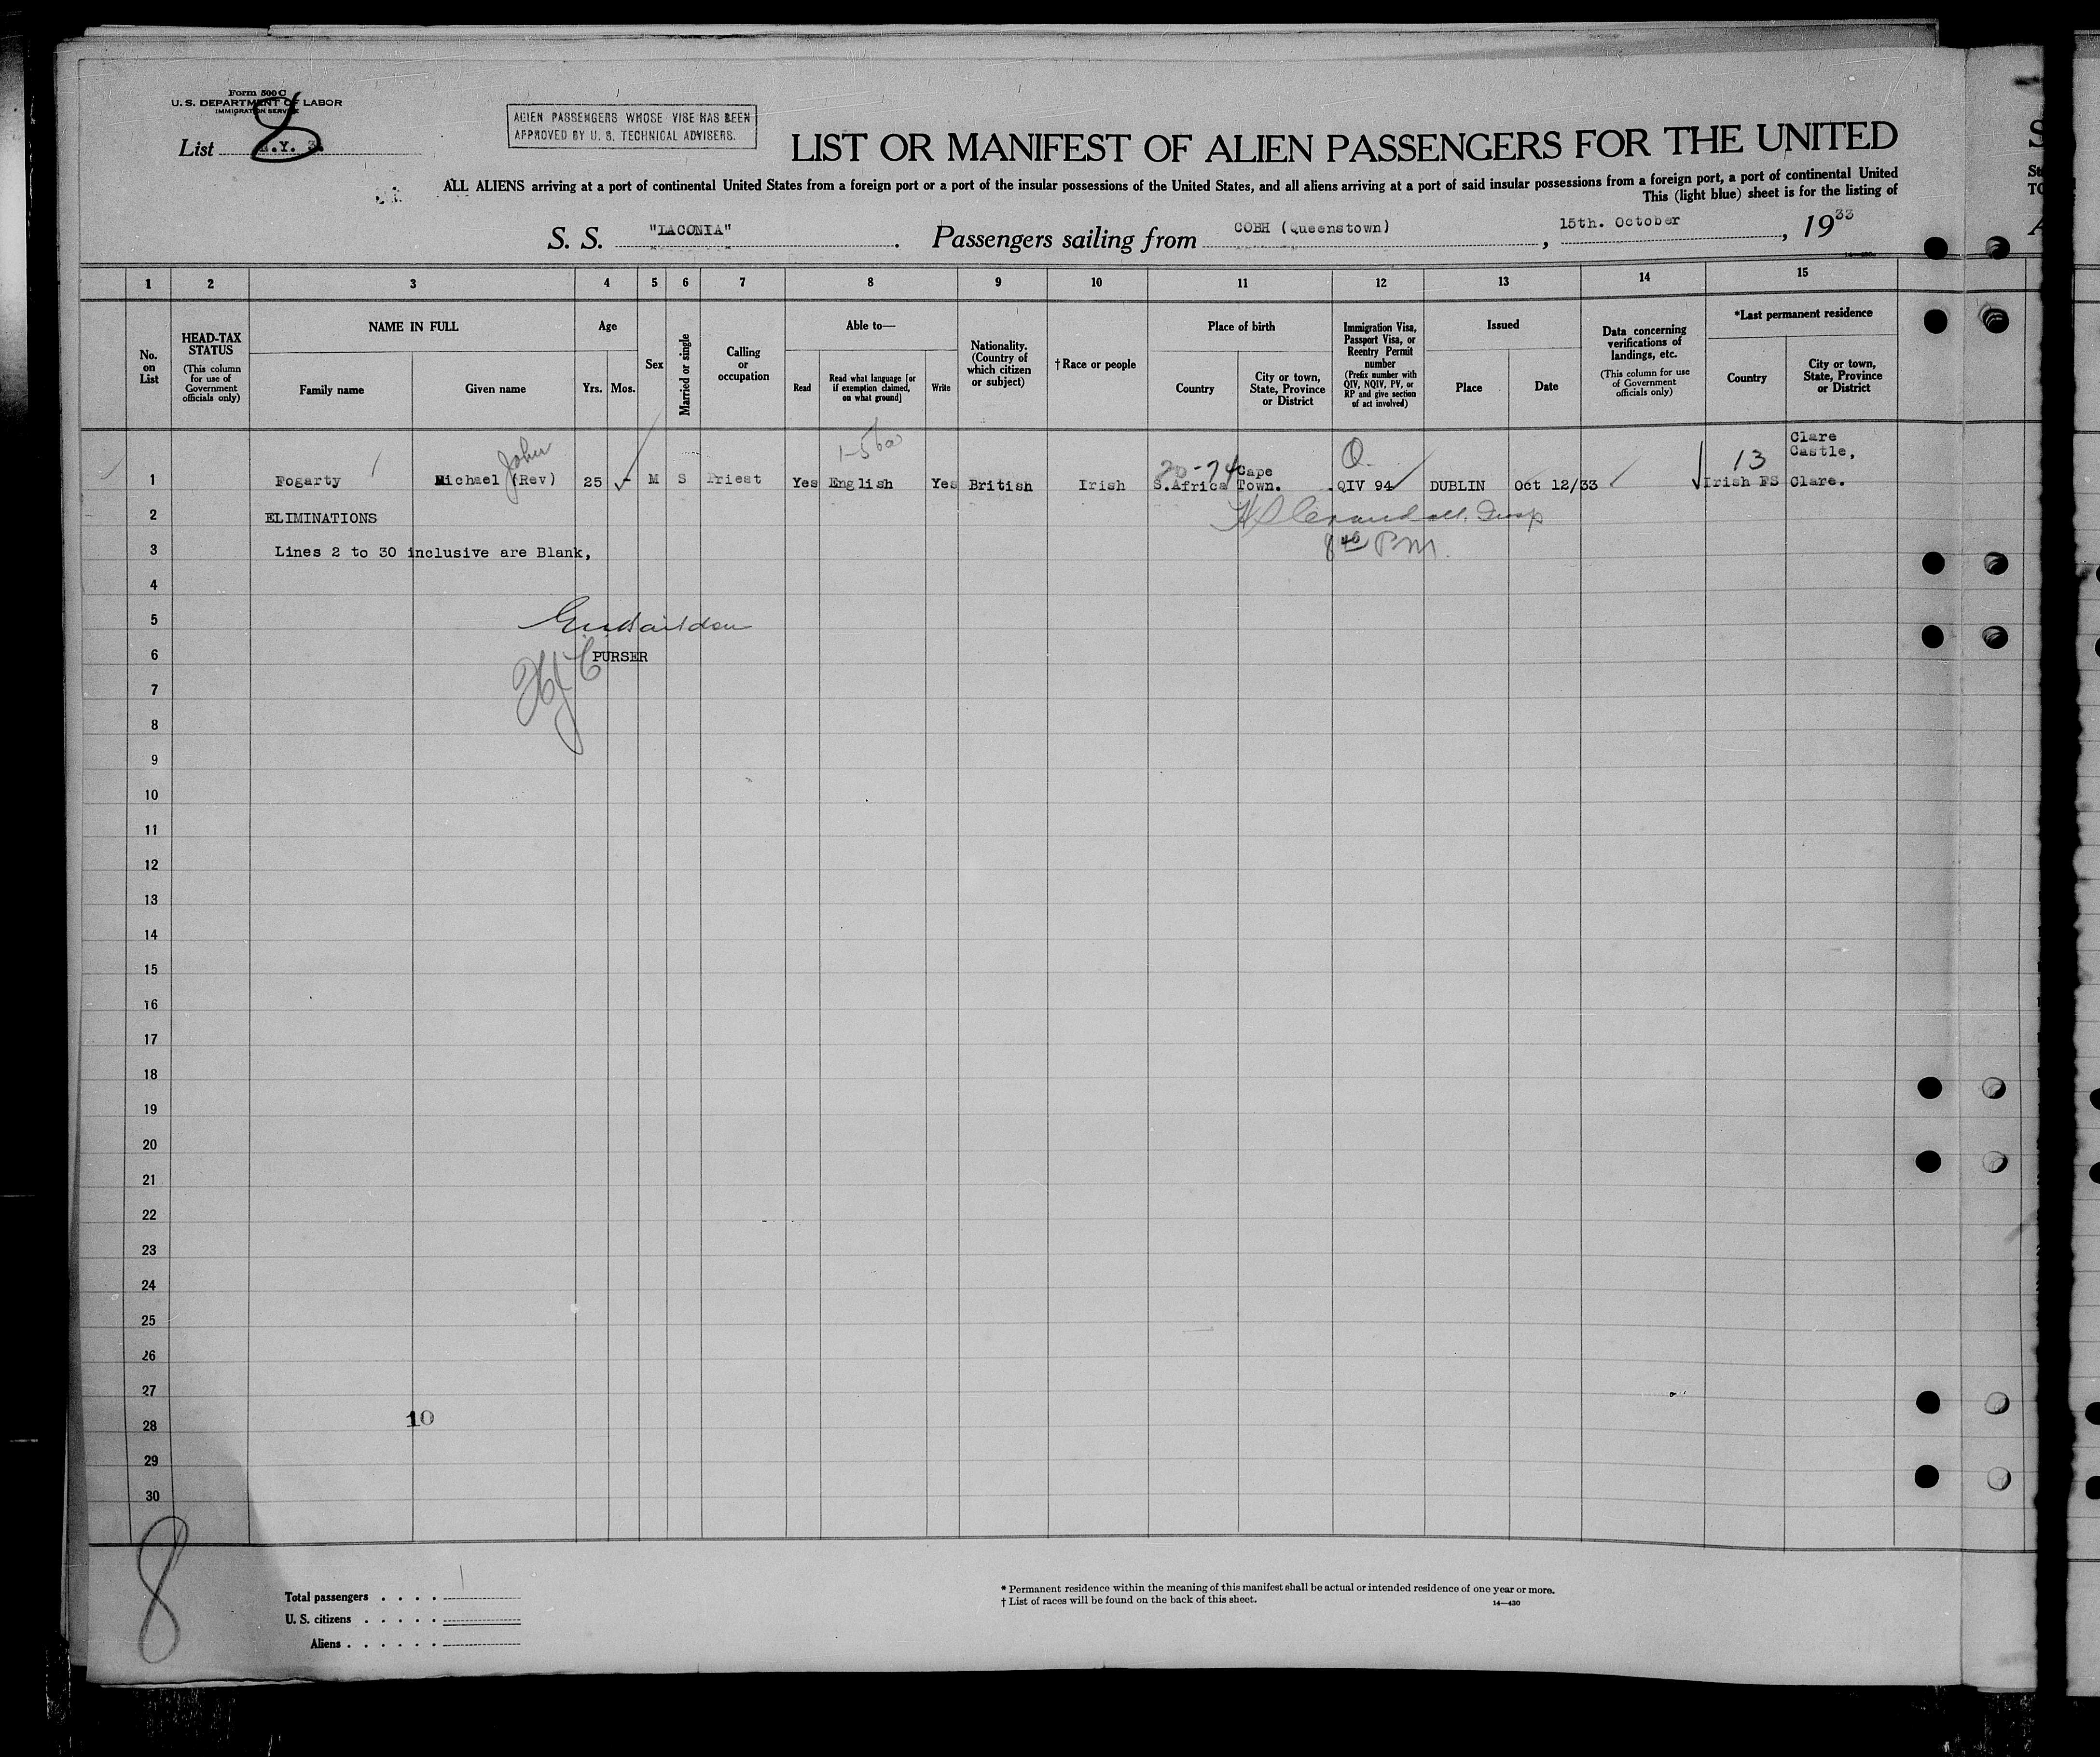 Form 500 C
U. S. DEPARTMENT OF LABOR
IMMIGRATION SERVICE
List 8
ALIEN PASSENGERS WHOSE VISE HAS BEEN
APPROVED BY U. S. TECHNICAL ADVISERS.
LIST OR MANIFEST OF ALIEN PASSENGERS FOR THE UNITED
ALL ALIENS arriving at a port of continental United States from a foreign port or a port of the insular possessions of the United States, and all aliens arriving at a port of said insular possessions from a foreign port, a port of continental United
This (light blue) sheet is for the listing of
S. S. "LACONIA". Passengers sailing from COBH (Queenstown), 15th. October, 1933
1 2 3 4 5 6 7 8 9 10 11 12 13 14 15
No. on List
HEAD-TAX STATUS
(This column for use of Government officials only)
NAME IN FULL
Family name
Given name
Age
Yrs. Mos.
Sex
Married or single
Calling or occupation
Able to—
Read
Read what language [or if exemption claimed, on what ground]
Write
Nationality. (Country of which citizen or subject)
†Race or people
Place of birth
Country
City or town, State, Province or District
Immigration Visa, Passport Visa, or Reentry Permit number
(Prefix number with QIV, NQIV, PV, or RP and give section of act involved)
Issued
Place
Date
Data concerning verifications of landings, etc.
(This column for use of Government officials only)
*Last permanent residence
Country
City or town, State, Province or District
John
Q.
20-74
13
1 Fogarty Michael (Rev) 25 M S Priest Yes English Yes British Irish S.Africa Cape Town. QIV 94 DUBLIN Oct 12/33 Irish FS Clare Castle, Clare.
2 ELIMINATIONS
3 Lines 2 to 30 inclusive are Blank,
4
5
6 PURSER
7
8
9
10
11
12
13
14
15
16
17
18
19
20
21
22
23
24
25
26
27
28 10
29
30
8
Total passengers . . . . 1
U. S. citizens . . . . .
Aliens . . . . . .
* Permanent residence within the meaning of this manifest shall be actual or intended residence of one year or more.
† List of races will be found on the back of this sheet.
14—430